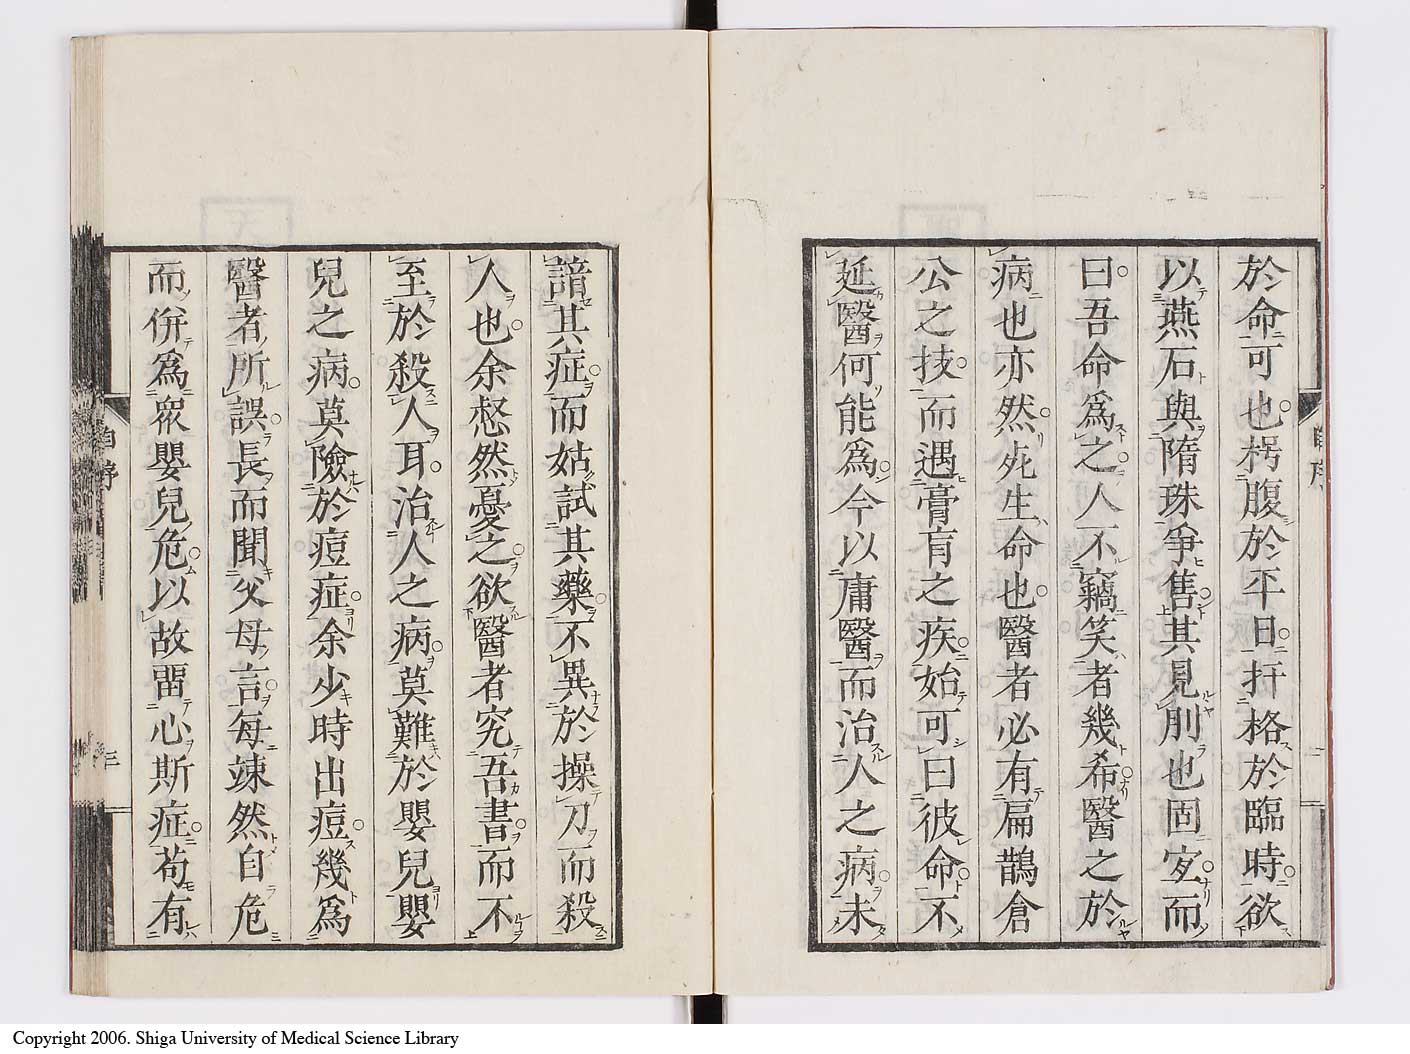 於命可也枵腹於平日扞格於臨時欲
以燕石與隋珠爭售其見刖也固宜而
曰吾命爲之人不竊笑者幾希醫之於
病也亦然死生命也醫者必有扁鵲倉
公之技而遇膏肓之疾始可曰彼命不
延醫何能爲今以庸醫而治人之病未
諳其症而姑試其藥不異於操刀而殺
人也余惄然憂之欲醫者究吾書而不
至於殺人耳治人之病莫難於嬰兒嬰
兒之病莫險於痘症余少時出痘幾爲
醫者所誤長而聞父母言每竦然自危
而併爲衆嬰兒危以故畱心斯症苟有
自序
三
Copyright 2006. Shiga University of Medical Science Library